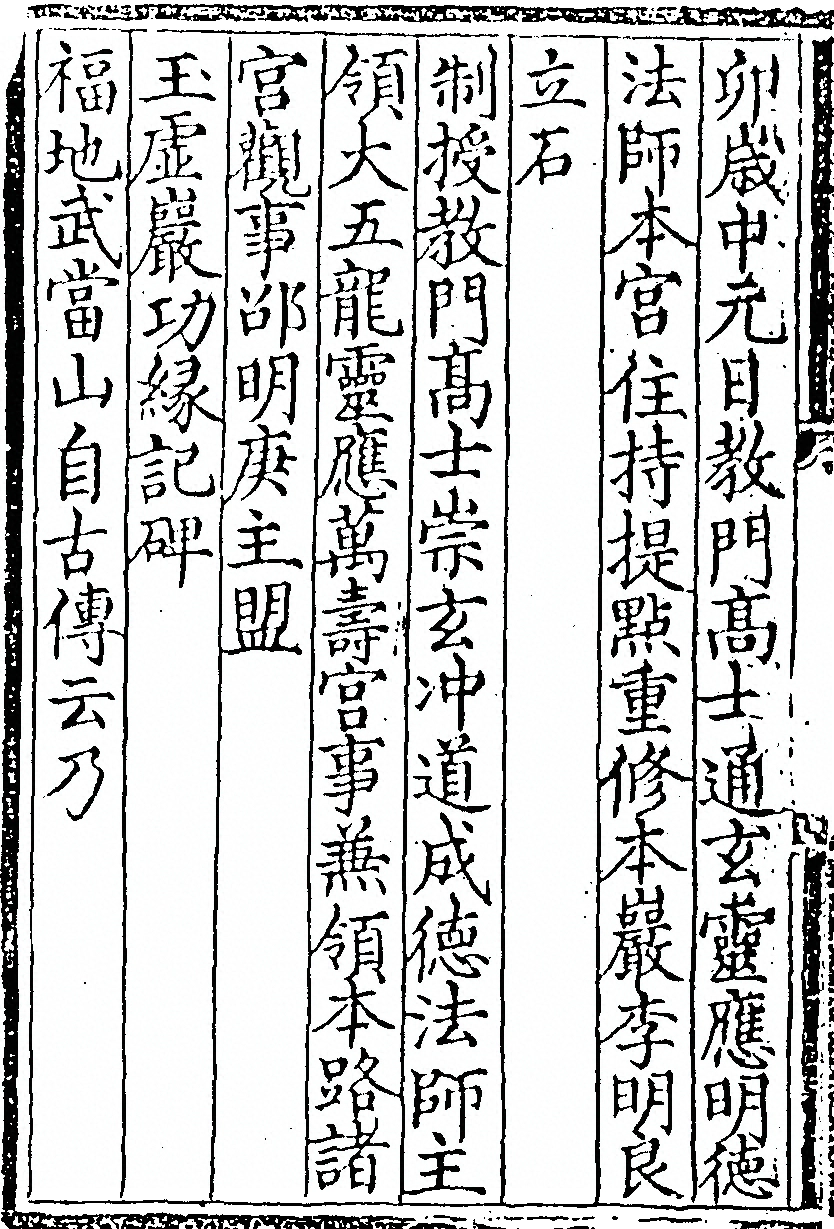 卯歲中元日教門髙士通玄靈應明德
法師本宮住持提點重修本巖李明良
立石
制授教門髙士崇玄冲道成德法師主
領大五龍靈應萬壽宮事兼領本路諸
宮觀事邵明庚主盟
玉虛巖功緣記碑
福地武當山自古傳云乃